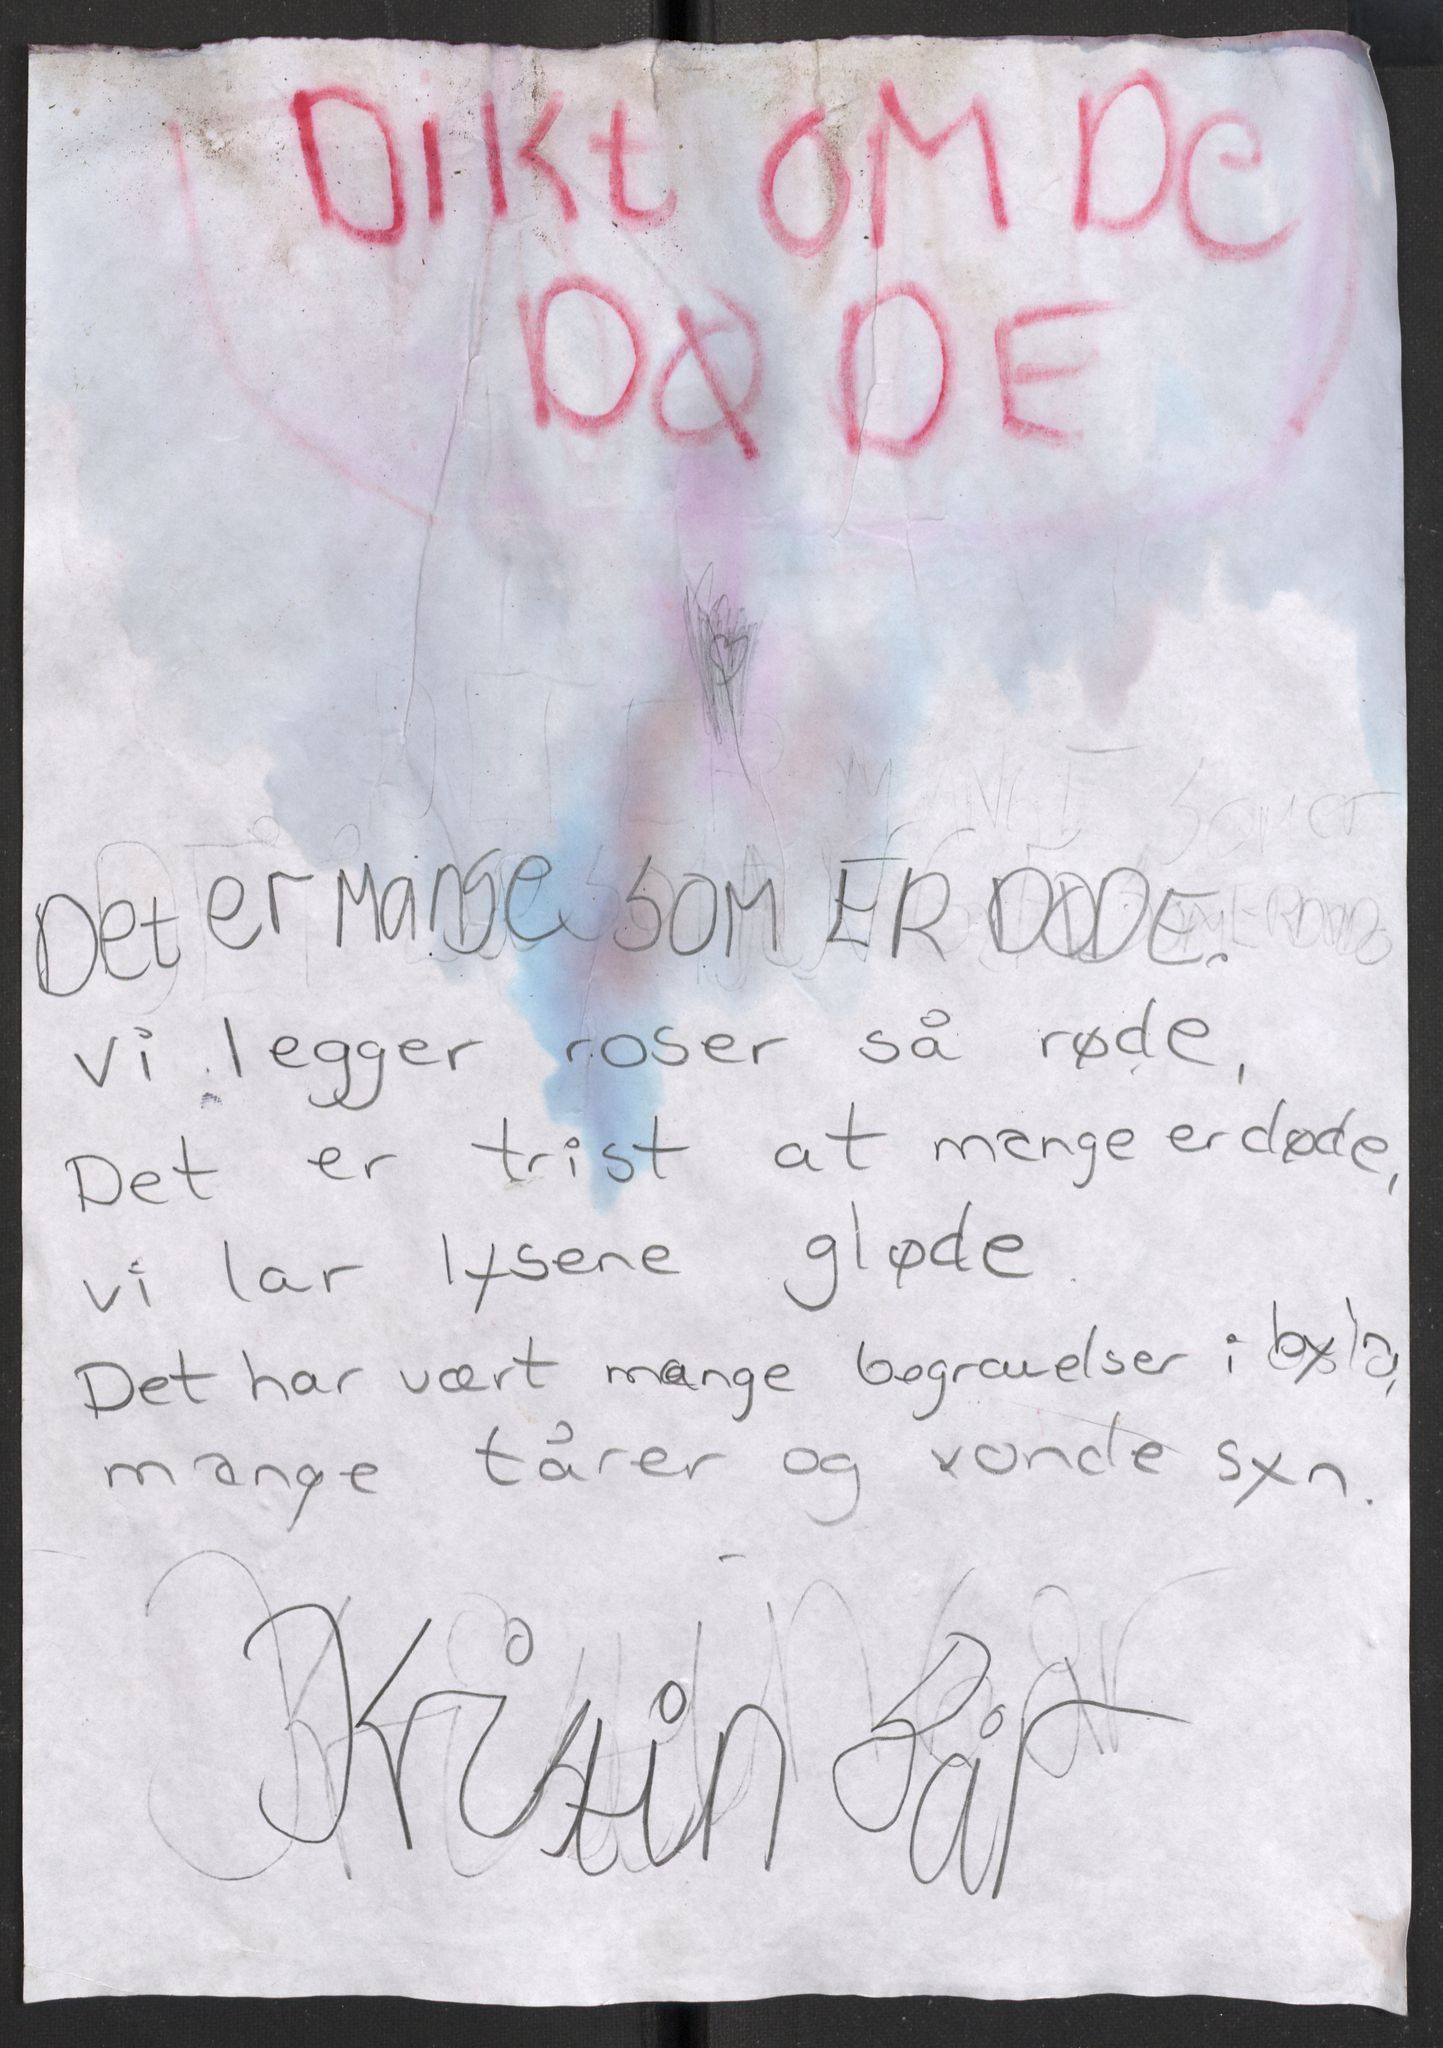 DiKt OM De
DØDE
Det er Mange SOM ER DØDE.
vi legger roser så røde,
Det er trist at mange er døde,
vi lar lysene gløde.
Det har vært mange begravelser i byen,
mange tårer og vonde syn.
Kristin